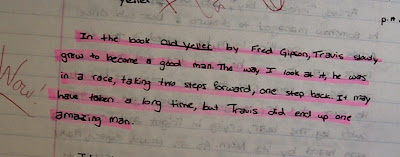 p.#
In the book Old Yeller by Fred Gipson, Travis slowly
grew to become a good man. The way I look at it, he was
in a race, taking two steps forward, one step back. It may
have taken a long time, but Travis did end up one
amazing man.
Wow!